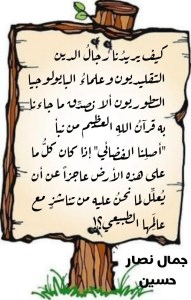 كيف يريدُنا رجالُ الدين
التقليديون وعلماءُ البايولوجيا
التطوريون ألا نصدِّق ما جاءنا
به قرآنُ اللهِ العظيم من نبأِ
"أصلِنا الفضائي" إذا كان كلُّ ما
على هذه الأرض عاجزاً عن أن
يُعلِّل لما نحنُ عليه من تناشزٍ مع
عالمِها الطبيعي؟!
جمال نصار
حسين